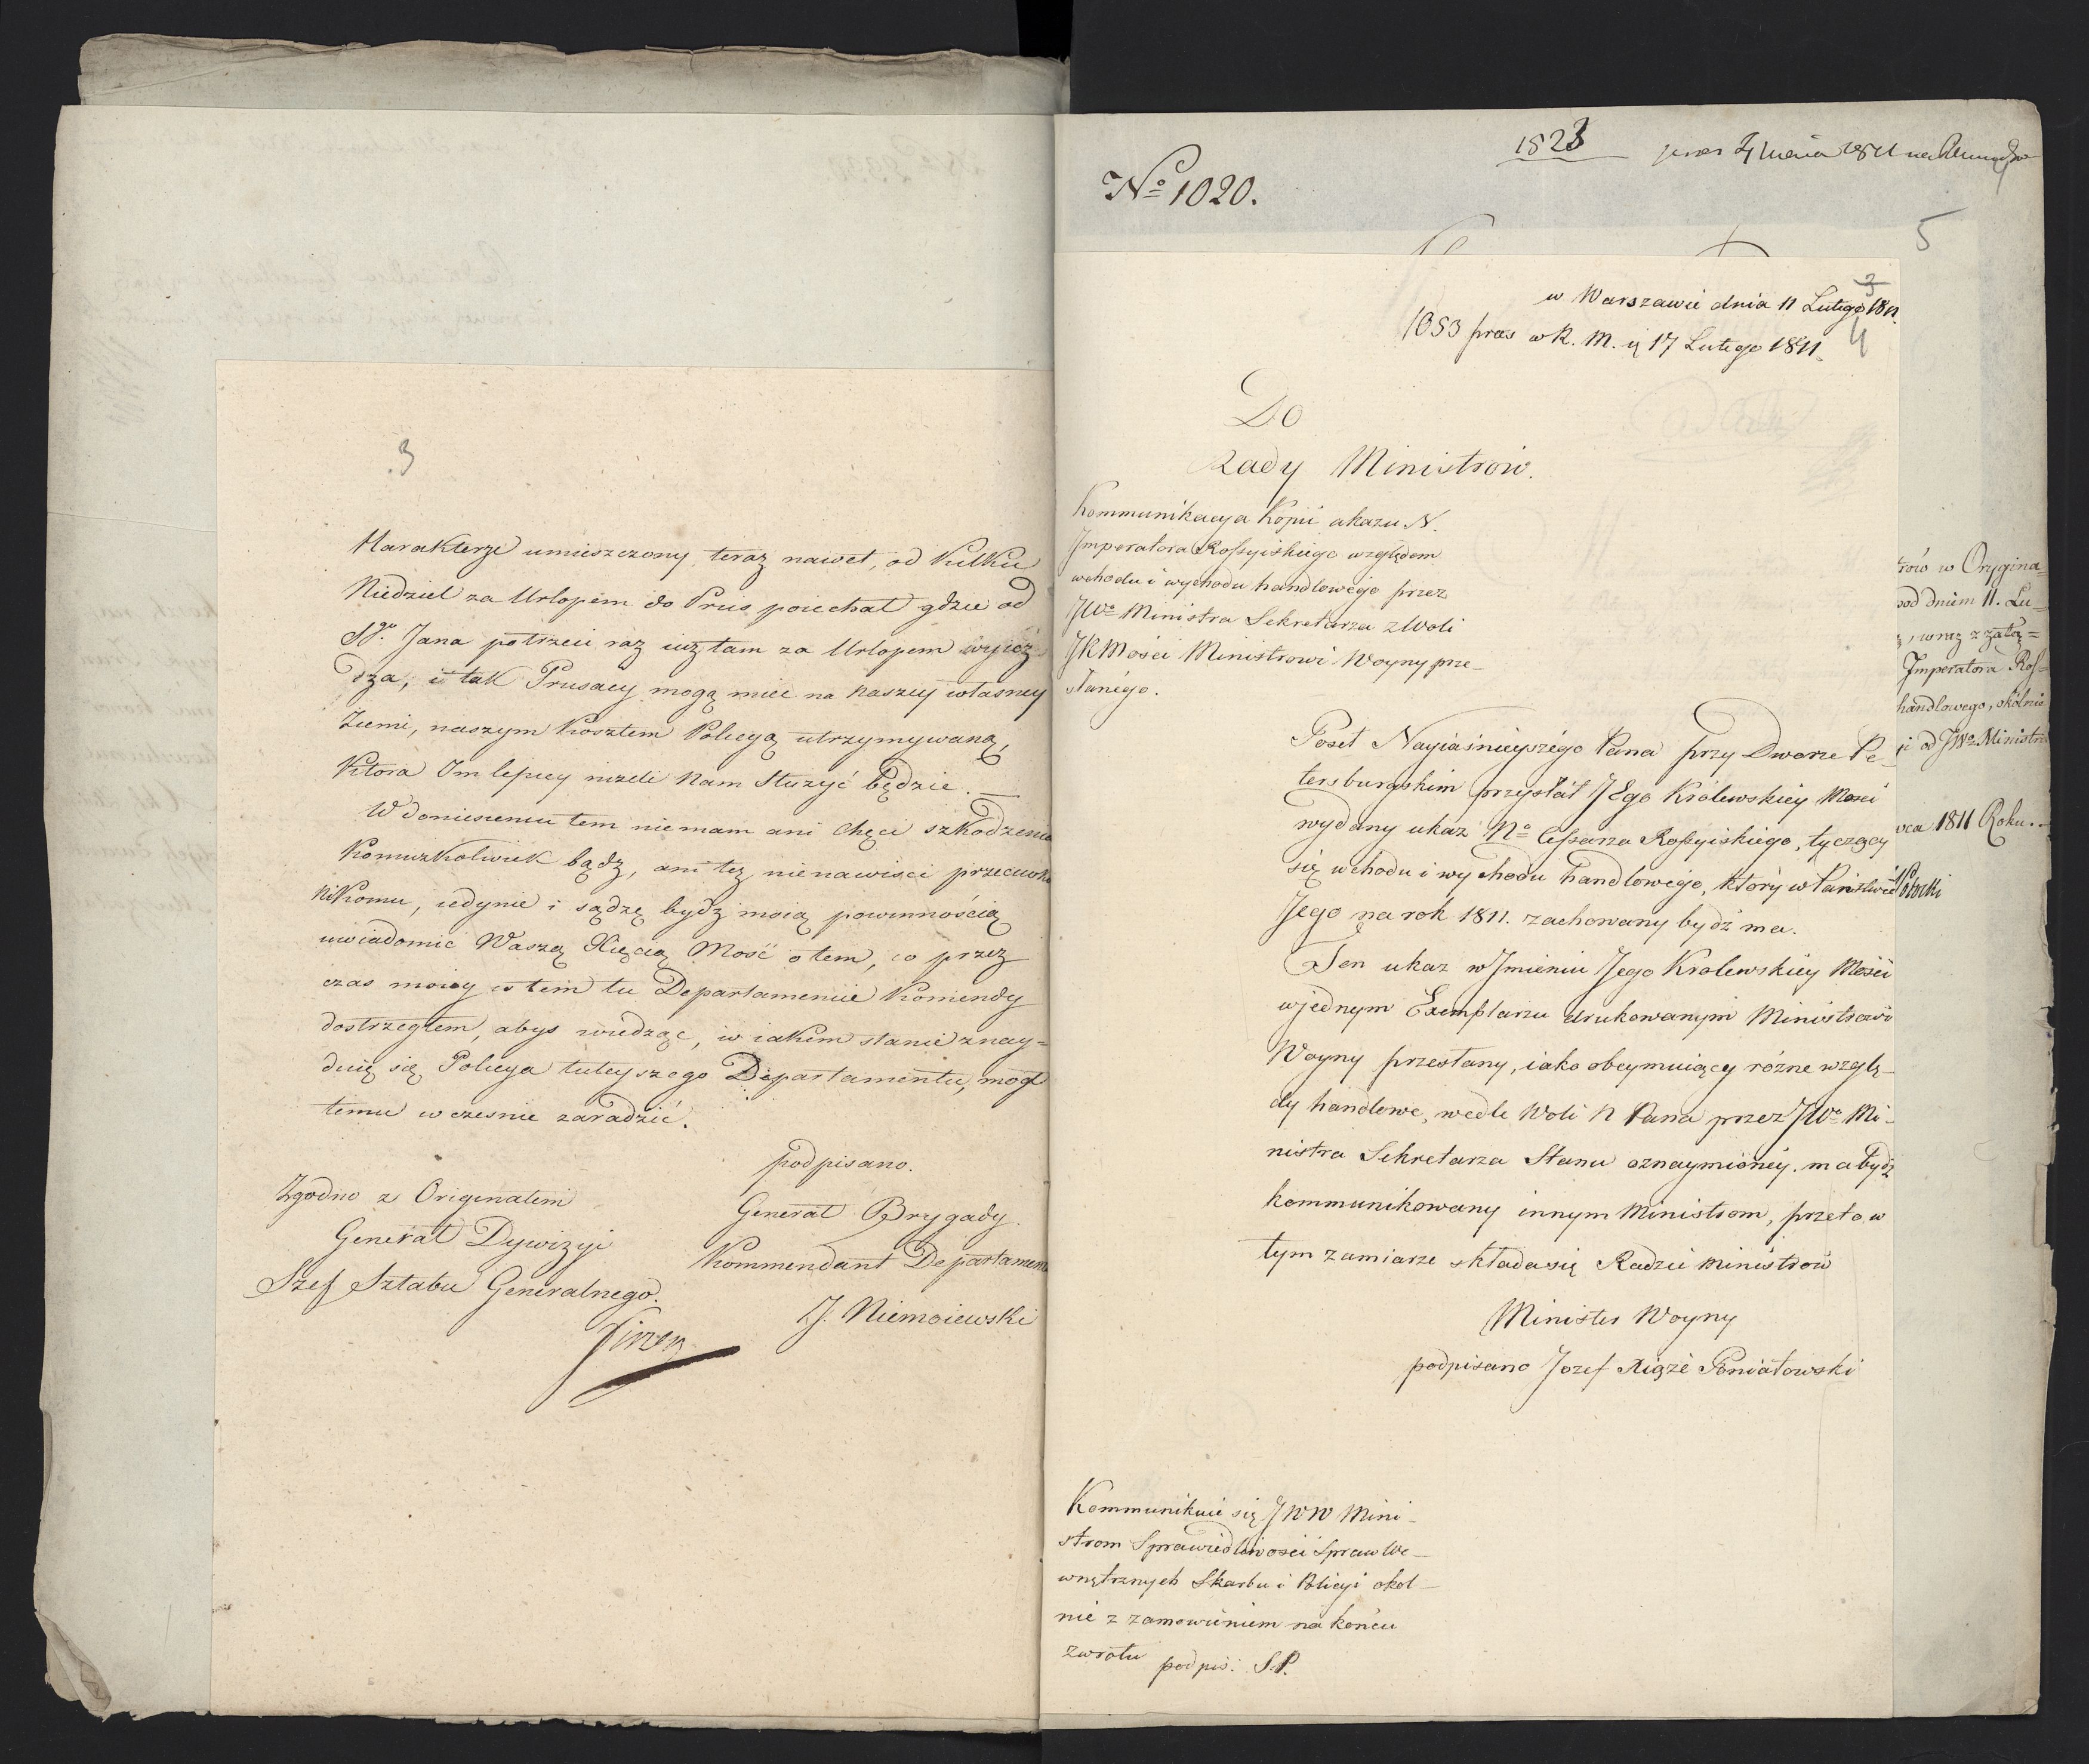 3
Harakterze umieszczony, teraz nawet, od Kilku
Niedziel za Urlopem do Prus poiechał gdzie od
Sgo. Jana potrzeci raz iuż tam za Urlopem wyież
dza, i tak Prusacy mogą mieć na naszey własney
Ziemi, naszym Kosztem Policyą utrzymywaną,
Ktora Im lepiey niżeli Nam służyć będzie. —
W doniesieniu tem niemam ani chęci szkodzenia
Komużkolwiek bądź, ani też nienawiści przeciwko
Nikomu, iedynie i sądzę bydź moią powinnością
uwiadomić Waszą Xięcią Mość o tem, co przez
czas moiey w tem tu Departamencie Komendy
dostrzegłem, abyś wiedząc, w iakim stanie znay=
duię się Policya tuteyszego Departamentu, mógł
temu wczesnie zaradzić.
podpisano.
Generał Brygady
Kommendant Departamen
J. Niemoiewski
Zgodno z Originałem
Generał Dywizyi
Szef Sztabu Generalnego.
No 1020.
1823
5
w Warszawie dnia 11 Lutego 1811.
3
1053 præs w R. M. 17 Lutego 1811.
4
Do
Rady Ministrów.
Kommunikacya Kopii ukazu N.
Imperatora Rossyiskiego względem
wchodu i wychodu handlowego przez
JWo Ministra Sekretarza z Woli
JKMości Ministrowi Woyny prze-
słanego.
Poseł Nayiaśnieyszego Pana przy Dworze Pe-
tersburgskim przysłał JEgo Królewskiey Mości
wydany ukaz No Cesarza Rossyiskiego, tyczący
się wchodu i wychodu handlowego, który w Państwie
Jego na rok 1811. zachowany bydź ma.
Ten ukaz w Jmieniu Jego Krolewskiey Mości
w jednym Exemplarzu drukowanym Ministrowi
Woyny przesłany, iako obeymuiący różne wzglę-
dy handlowe, wedle Woli N Pana przez JWo Mi-
nistra Sekretarza Stanu oznaymioney. ma bydź
kommunikowany innym Ministrom, przeto w
tym zamiarze składa się Radzie Ministrów
Minister Woyny
podpisano Jozef Xiąże Poniatowski
Kommunikuie się JWW Mini-
strom Sprawiedliwości Spraw We-
wnętrznych Skarbu i Policyi okol-
nie z zamowieniem na końcu
zwrotu podpis: S.P.
trów w Orygina=
pod dniem 11. Lu=
wraz z załą=
Imperatora Ros=
handlowego, okólnie
od JWo Ministra
wca 1811 Roku.
Potocki